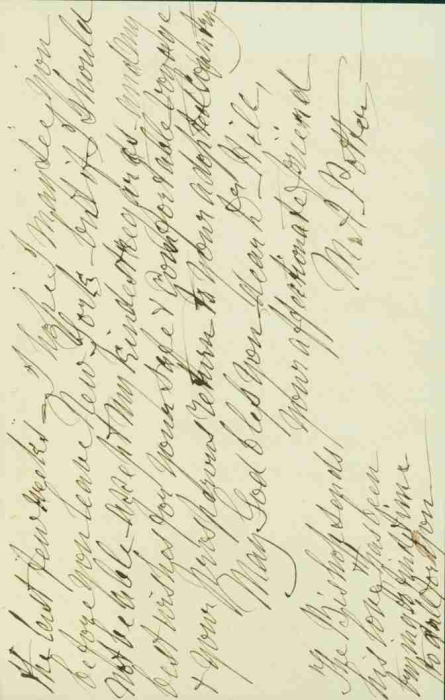 the last few weeks - I hope I may see you
before you leave New York - but if I should
not be able - accept my kindest regards - and my
best wishes for your safe & comfortable voyage
& your prosperous return to your adopted country
May God bless you dear Dr Hill,
Your affectionate friend
M. Potter
The Bishop sends
his love - has been
time
to call for you